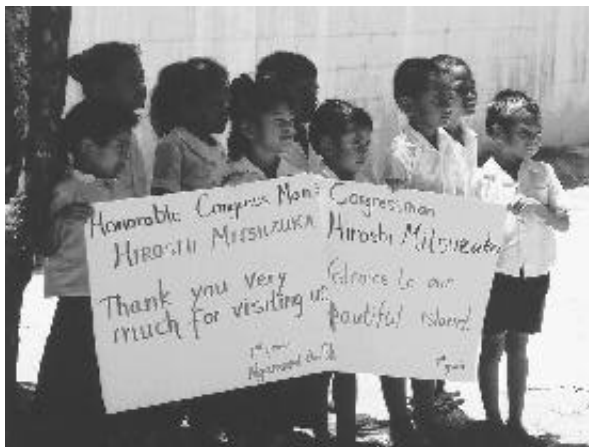 Honorable Congress Man
HIROSHI MITSUZUKA
Thank you very
much for visiting us
1st year
Cogressman
Hiroshi Mitsuzuka
to our
Beautiful island!